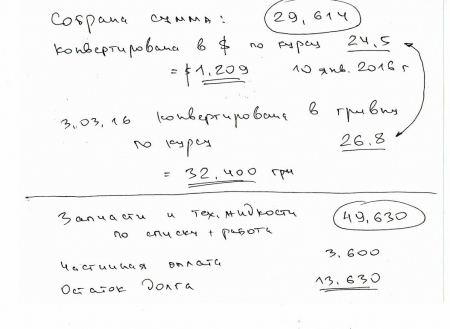 Собрана сумма: 29,614
конвертирована в $ по курсу 24,5
= $1,209 10 янв. 2016 г
3.03.16 конвертирована в гривны
по курсу 26.8
= 32.400 грн
Запчасти и тех. жидкости 49,630
по списку + работа
Частичная оплата 3.600
Остаток долга 13.630